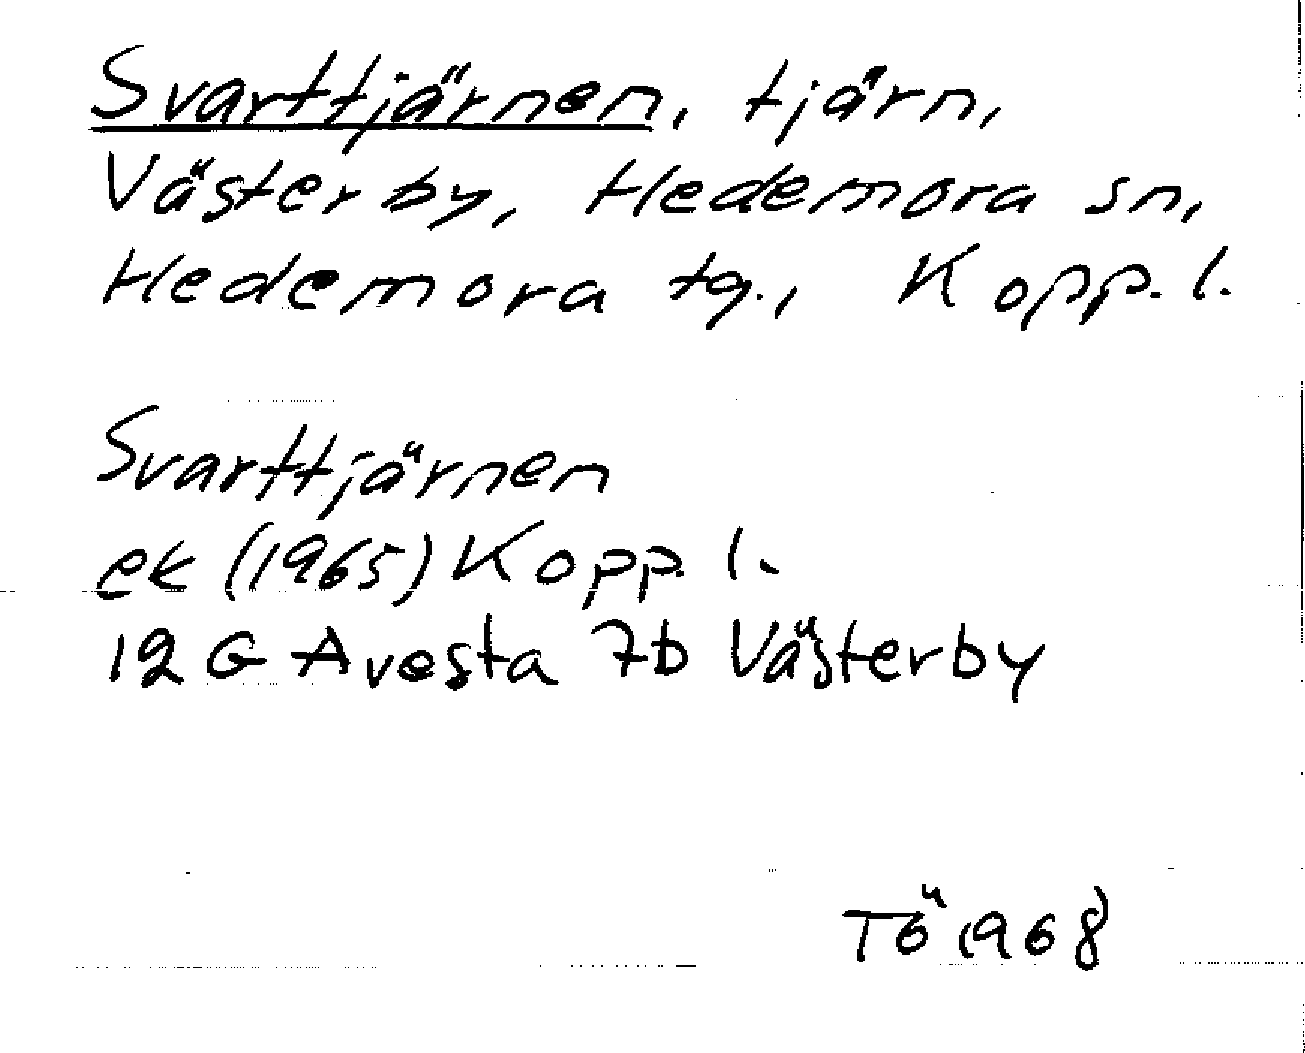 Svarttjärnen, tjärn,
Västerby, Hedemora sn,
Hedemora tg., Kopp. l.
Svarttjärnen
ek (1965) Kopp. l.
12 G Avesta 7b Västerby
TÖ 1968